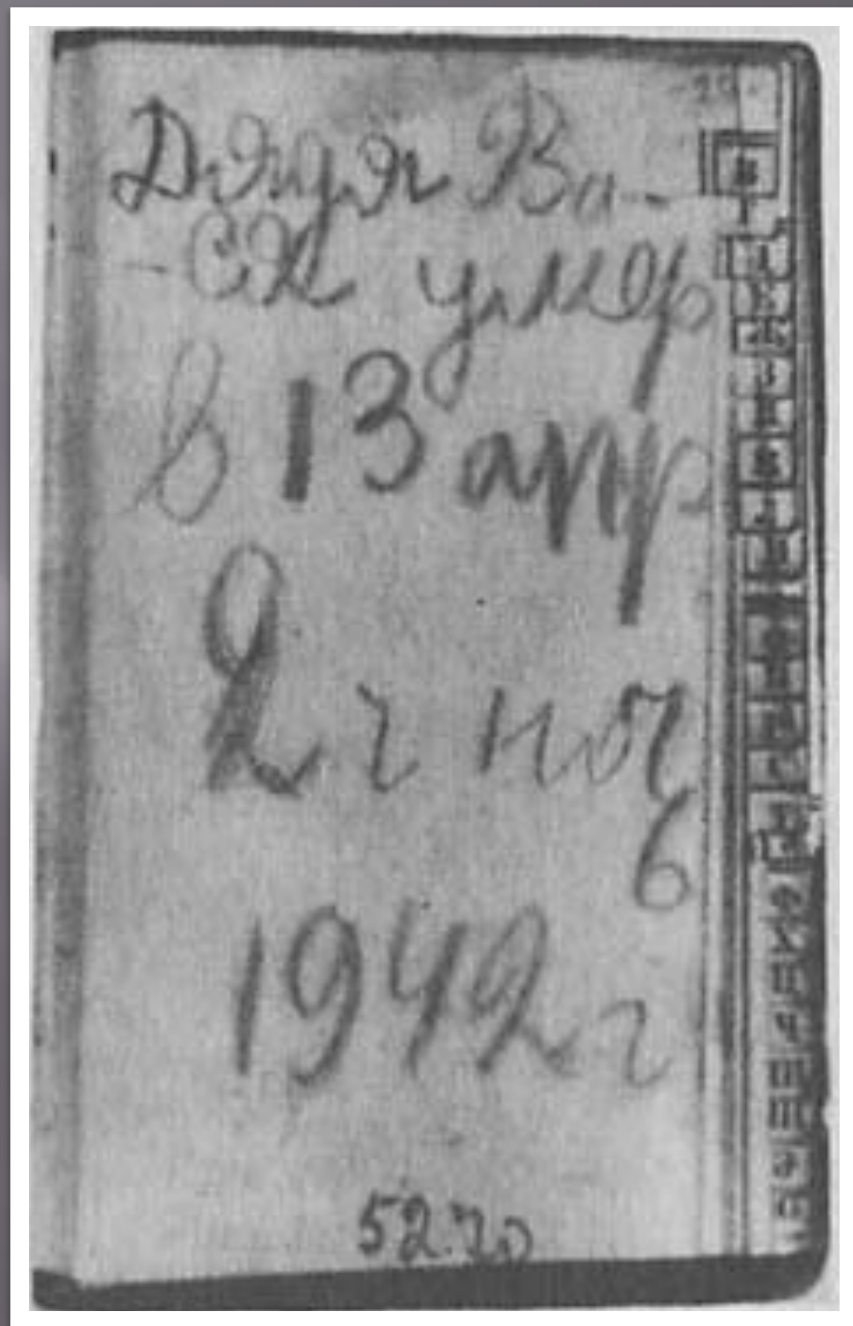 Дядя Ва-
ся умер
в 13 апр
2 ч ноч
ь
1942 г
5270